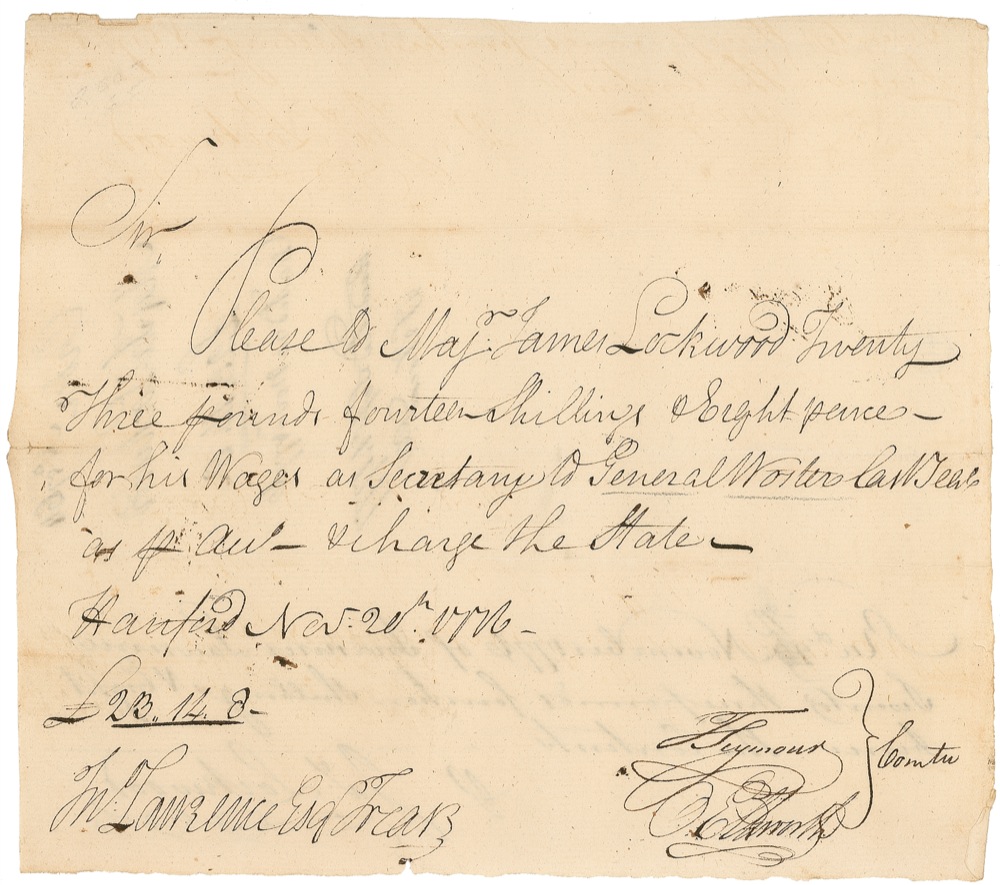 Sir
Please to Majr. James Lockwood Twenty
Three pounds fourteen Shillings & Eight pence –
for his Wages as Secretary to General Woster Last Year
as pr Acct – & charge the State –
Hartford Novr. 20th. 1776 –
£23. 14. 8 –
T Seymour
O Ellsworth
Comtee
Jno. Lawrence Esqr Treasr